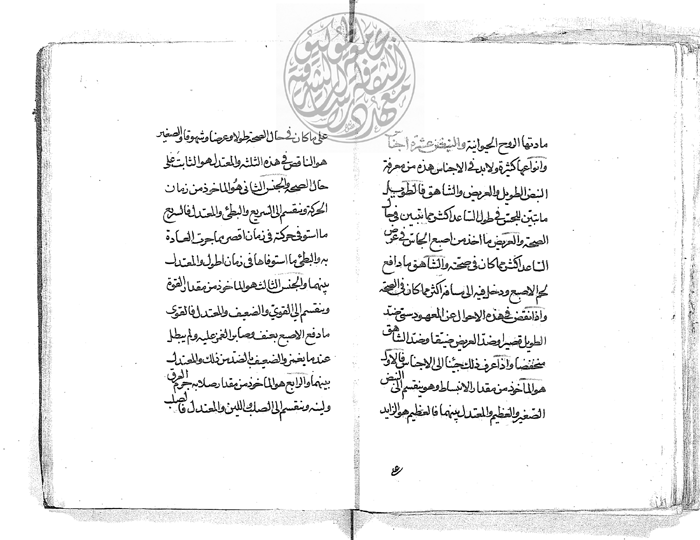 مادتها الروح الحيوانية والنبض عشرة اجناس
وانواعها كثيرة ولابد في الاجناس هذه من معرفة
النبض الطويل والعريض والشاهق فالطويل
ما تبين للمجس في طول الساعد اكثر مما تبين في حال
الصحة والعريض ما اخذ من اصبع الجاس في عرض
الساعد اكثر مما كان في صحته والشاهق ما دافع
لحم الاصبع ودخل فيه الى مسافة اكثر مما كان في الصحة
واذا نقص في هذه الاحوال عن المعهود سمي ضد
الطويل قصيرا وضد العريض ضيقا وضد الشاهق
منخفضا واذا عرف ذلك جئنا الى الاجناس فالاول
هو المأخوذ من مقدار الانبساط وهو ينقسم الى النبض
الصغير والعظيم والمعتدل بينهما فالعظيم هو الزايد
على ما كان في حال الصحة طولا وعرضا وشهوقا والصغير
هو الناقص في هذه الثلثة والمعتدل هو الثابت على
حال الصحة والجنس الثاني هو الماخوذ من زمان
الحركة وينقسم الى السريع والبطئ والمعتدل فالسريع
ما استوفى حركته في زمان اقصر مما جرت العادة
به والبطئ ما استوفاها في زمان اطول والمعتدل
بينهما والجنس الثالث هو الماخوذ من مقدار القوة
وينقسم الى القوي والضعيف والمعتدل فالقوي
ما دفع الاصبع بعنف وصابر الغمز عليه ولم يبطل
عندما يغمز والضعيف الضد من ذلك والمعتدل
بينهما والرابع هو الماخوذ من مقدار صلابة جرم العرق
ولينه وينقسم الى الصلب واللين والمعتدل فالصلب